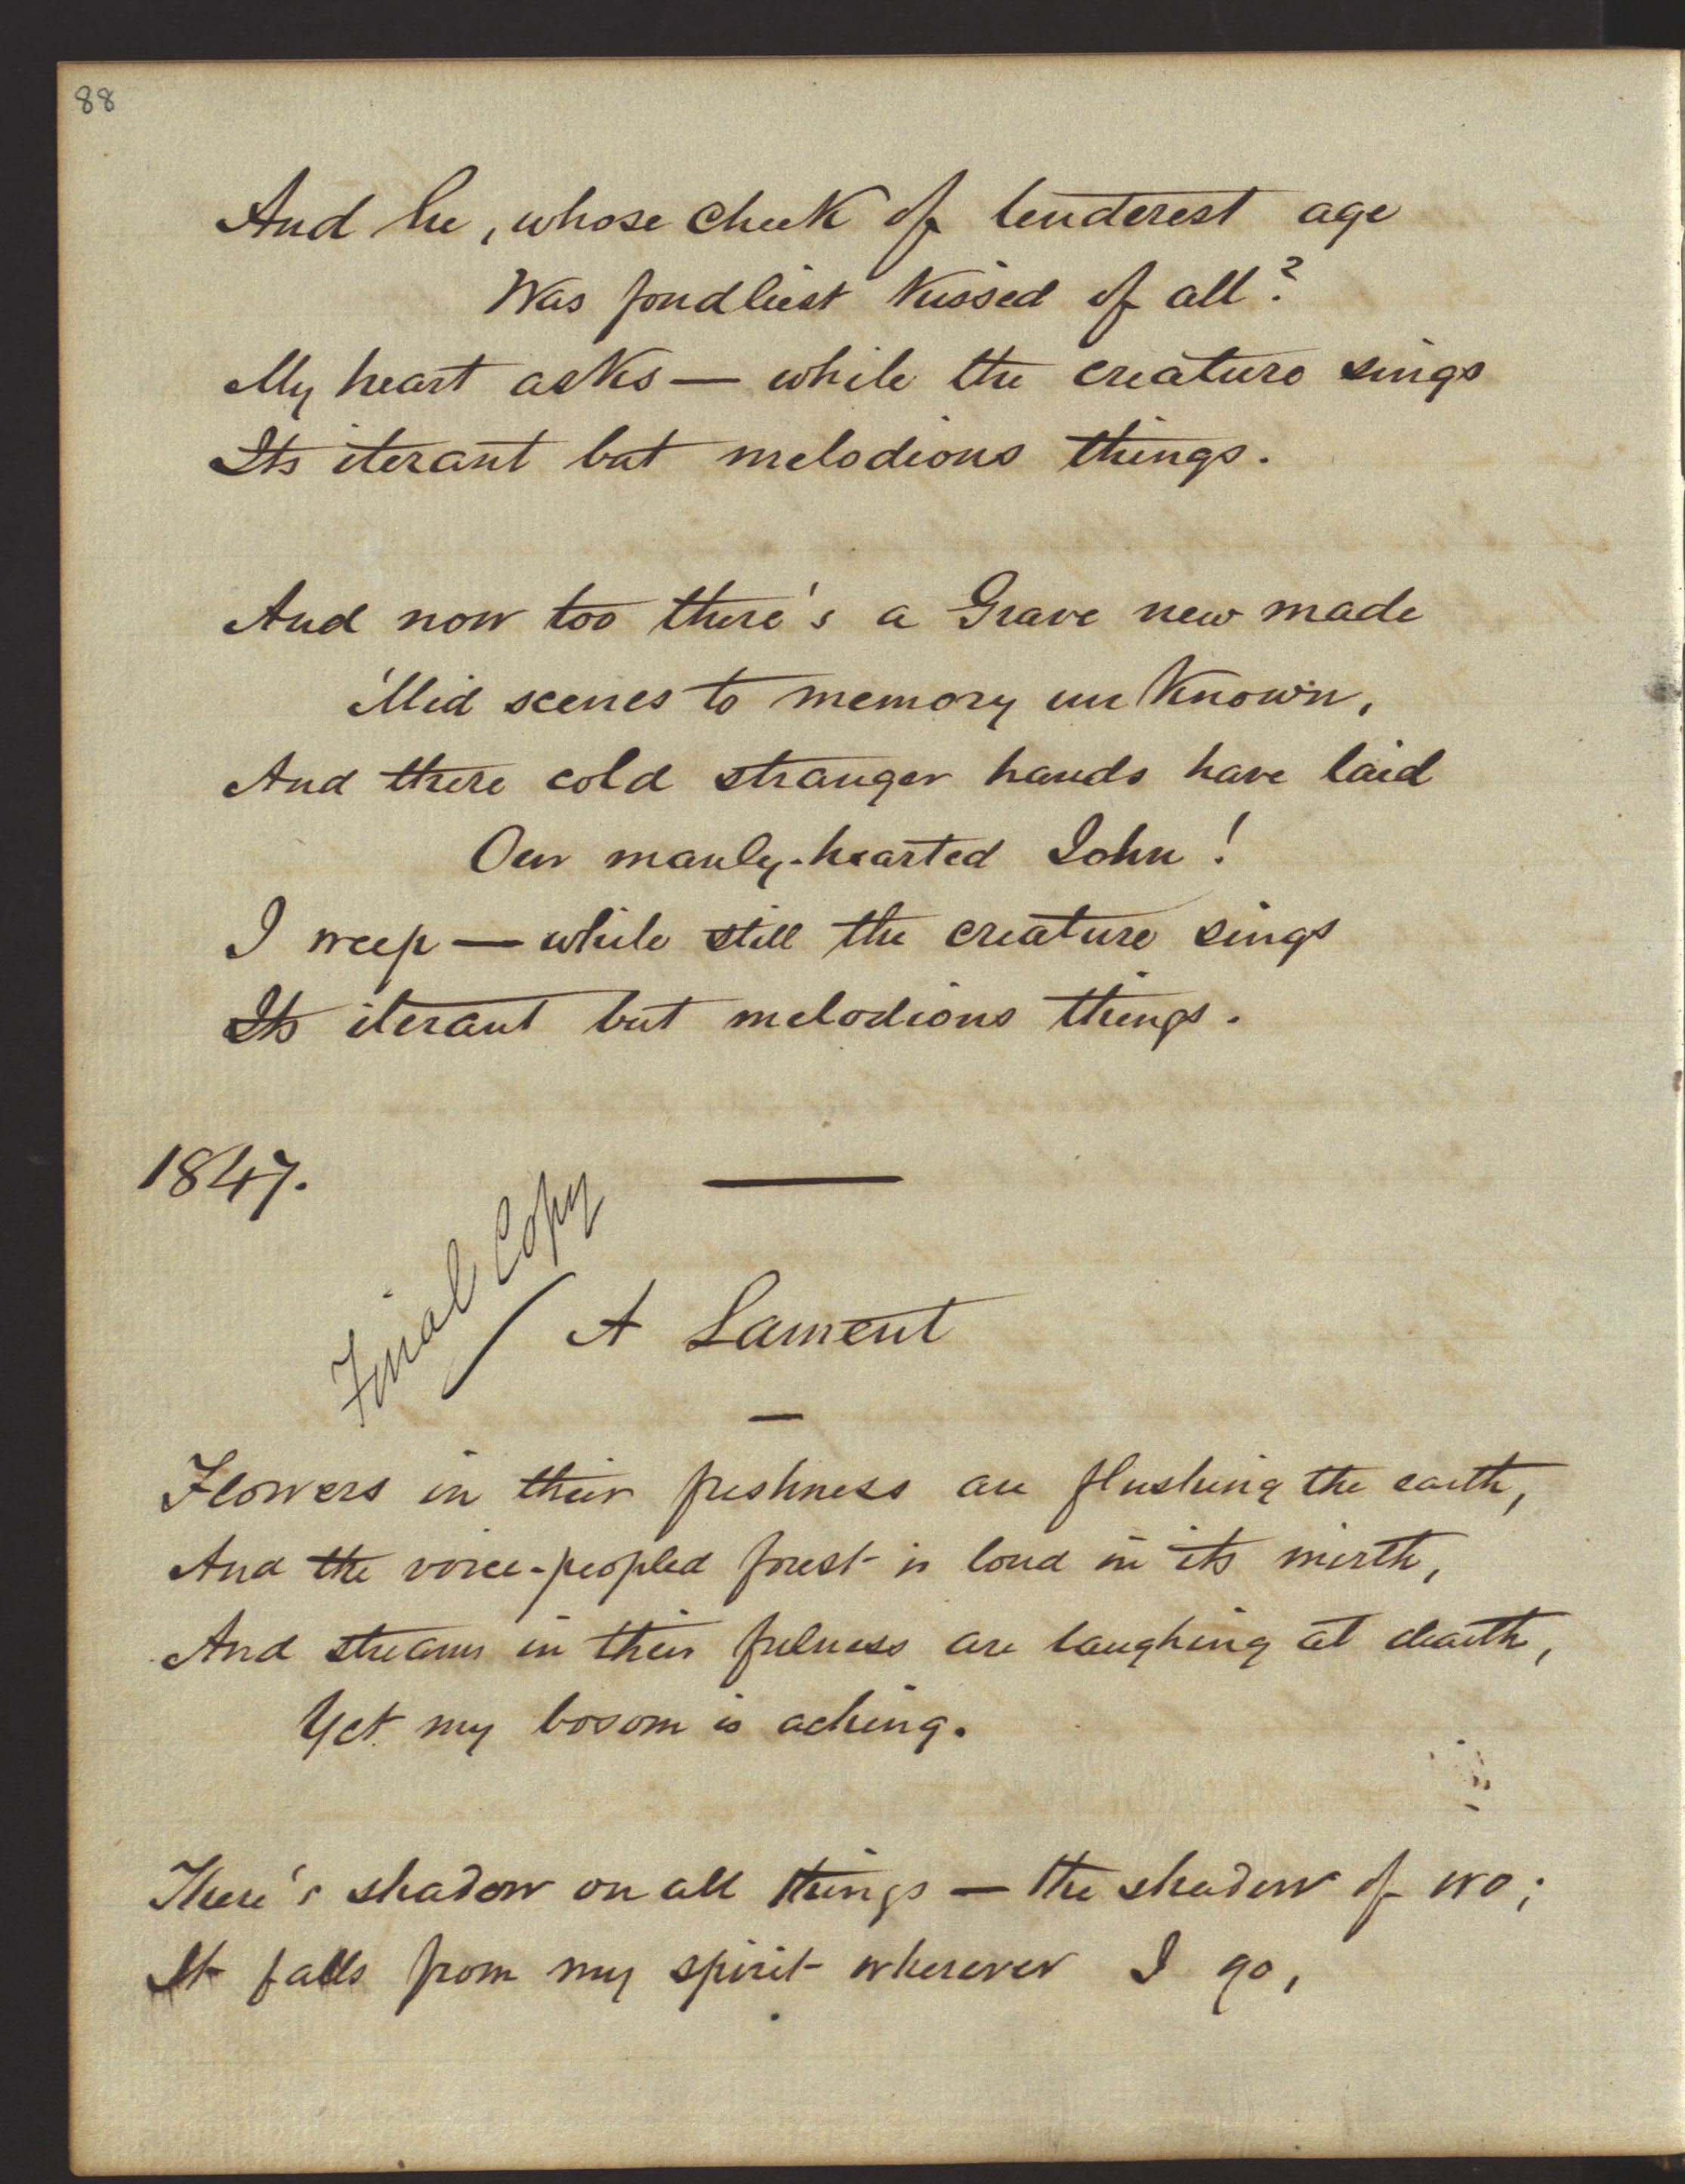 88
And he, whose cheek of tenderest age
Was fondliest kissed of all?
My heart asks — while the creature sings
Its iterant but melodious things.
And now too there's a Grave new made
'Mid scenes to memory unknown,
And there cold stranger hands have laid
Our manly-hearted John!
I weep — while still the creature sings
Its iterant but melodious things.
1847.
Final Copy
A Lament
Flowers in their freshness are flushing the earth,
And the voice-peopled forest is loud in its mirth,
And streams in their fulness are laughing at dearth,
Yet my bosom is aching.
There's shadow on all things — the shadow of wo;
It falls from my spirit wherever I go,